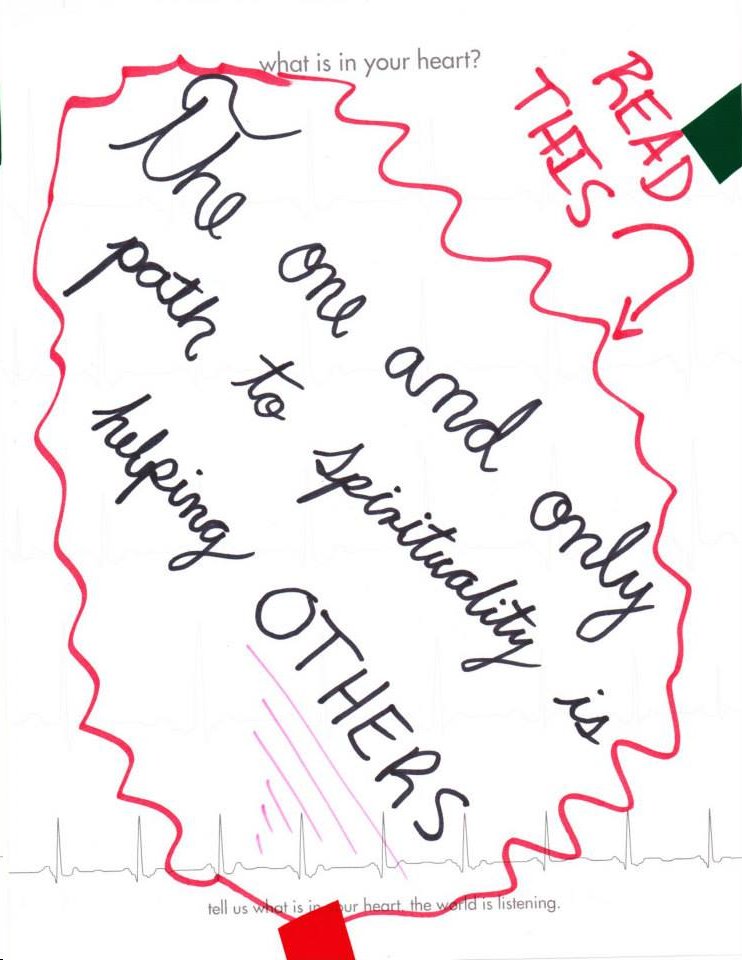 what is in your heart?
READ
THIS
The one and only
path to spirituality is
helping OTHERS
tell us what is in your heart, the world is listening.